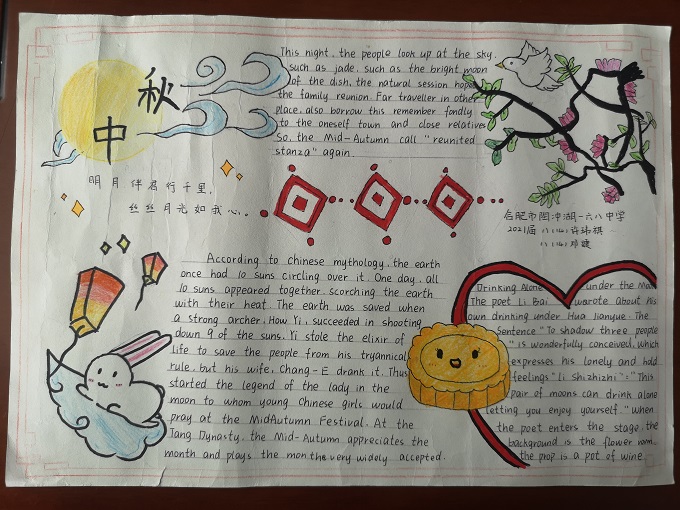 中秋
This night, the people look up at the sky,
such as jade, such as the bright moon
of the dish, the natural session hopes
the family reunion. Far traveller in other
place, also borrow this remember fondly
to the oneself town and close relatives
So, the Mid-Autumn call "reunited
stanza" again.
明月伴君行千里,
丝丝月光如我心。
合肥市四十湖一六八中学
2021届
According to Chinese mythology, the earth
once had 10 suns circling over it. One day, all
10 suns appeared together, scorching the earth
with their heat. The earth was saved when
a strong archer, How Yi, succeeded in shooting
down 9 of the suns. Yi stole the elixir of
Life to save the people from his tryannical
rule, but his wife, Chang-E drank it. Thus
started the legend of the lady in the
moon to whom young Chinese girls would
pray at the MidAutumn Festival. At the
Tang Dynasty, the Mid-Autumn appreciates the
month and plays the month very widely accepted.
Drinking Alone under the Moon
The poet Li Bai warote about his
own drinking under Hua Jianyue. The
Sentence "To shadow three people
" is wonderfully conceived, which
expresses his lonely and hold
feelings "Li Shizhizhi": "This
pair of moons can drink alone
letting you enjoy yourself." When
the poet enters the stage, the
background is the flower room,
the prop is a pot of wine.